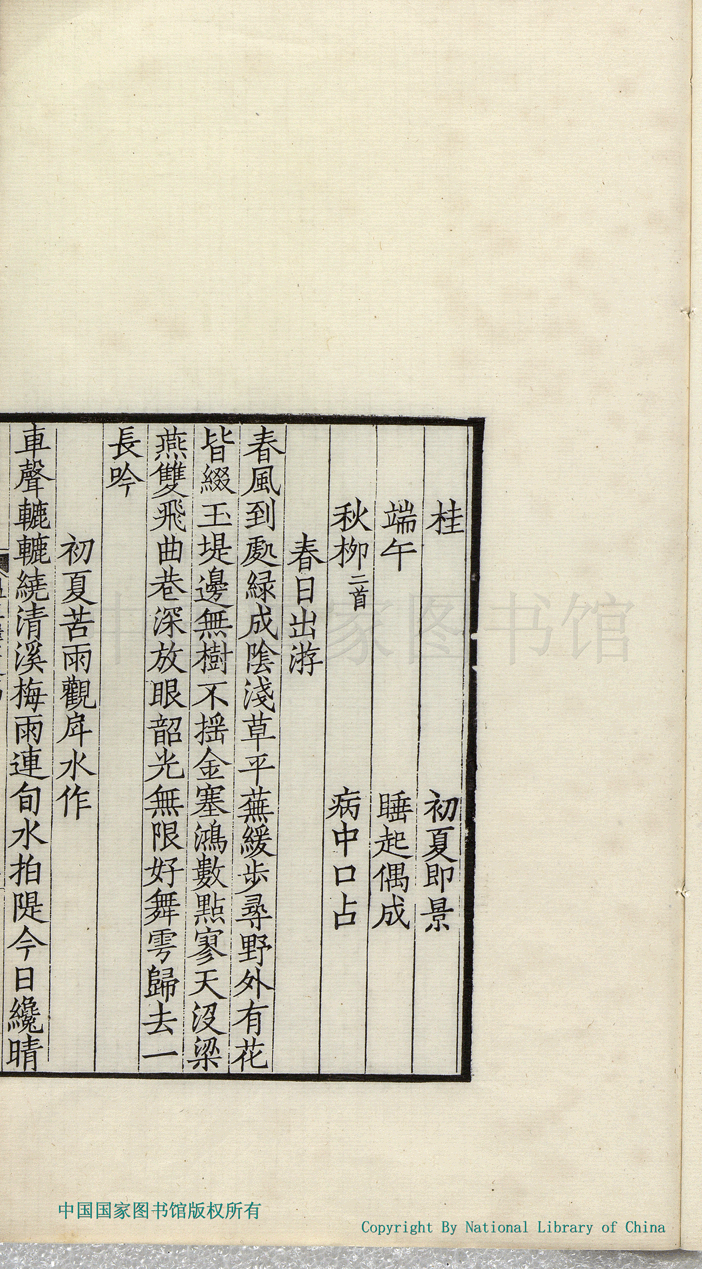 桂　初夏即景
端午　睡起偶成
秋栁二首　病中口占
春日出游
春風到處緑成陰淺草平蕪緩步尋野外有花
皆綴玉堤邊無樹不摇金塞鴻數點寥天没梁
燕雙飛曲巷深放眼韶光無限好舞雩歸去一
長吟
初夏苦雨觀戽水作
車聲轆轆繞清溪梅雨連旬水拍隄今日纔晴
中国国家图书馆
中国国家图书馆版权所有
Copyright By National Library of China